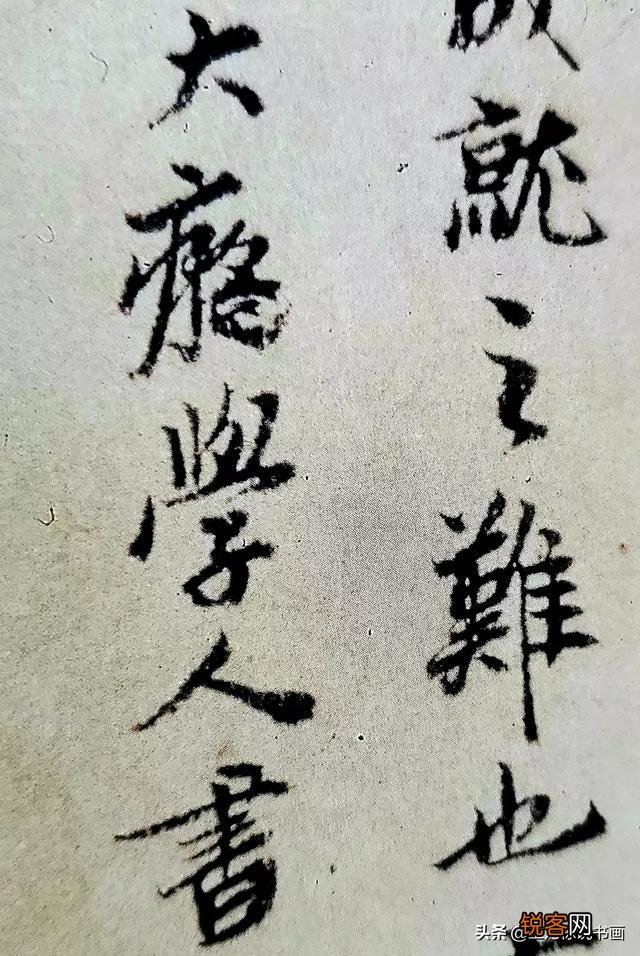 就之難也
大癡學人書
头条 @
书画
锐客网